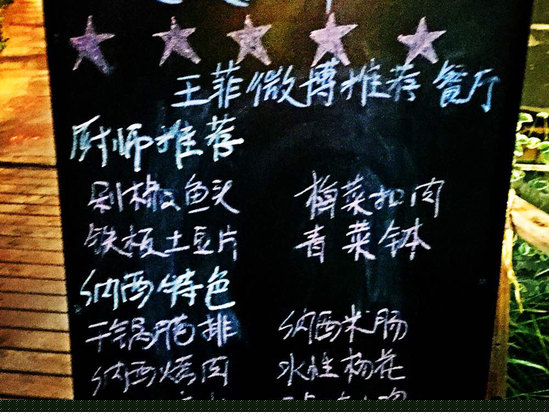 王菲微博推荐餐厅
厨师推荐
剁椒鱼头 梅菜扣肉
铁板土豆片 青菜钵
纳西特色
干锅腊排 纳西米肠
纳西烤肉 水性杨花